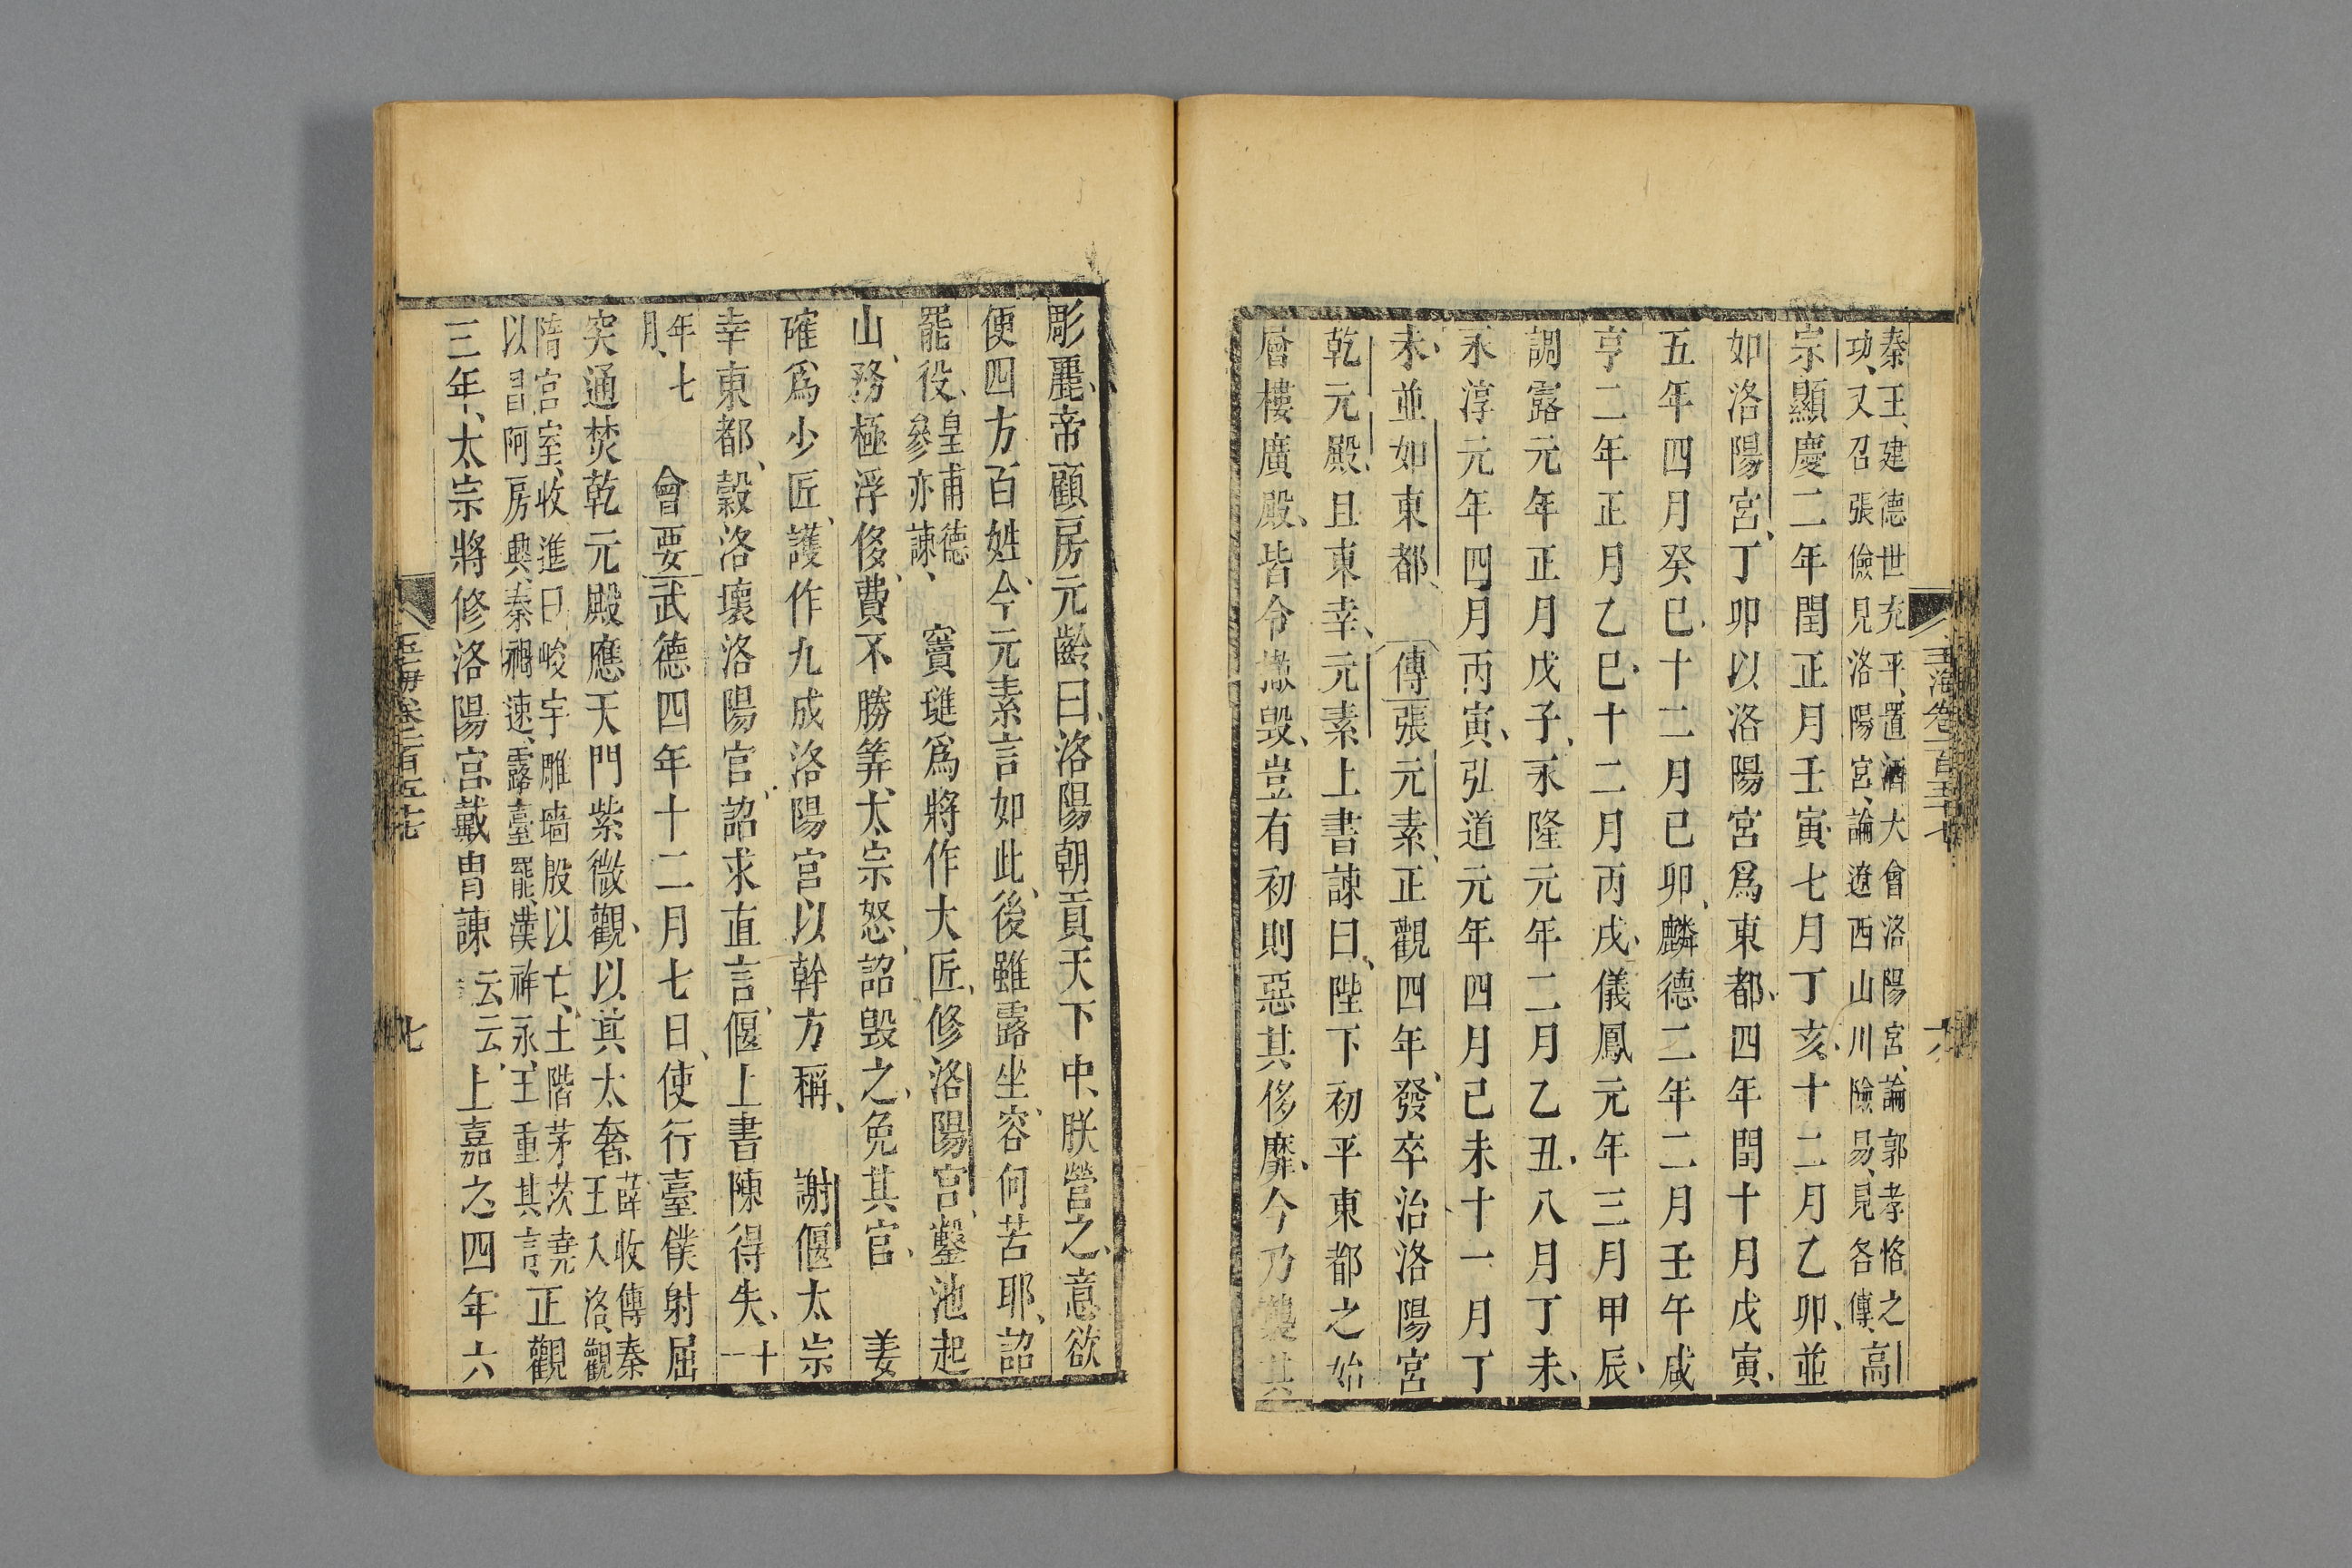 秦王建德世充平置酒大會洛陽宮論郭孝恪之
功又召張儉見洛陽宮論遼西山川險易見各傳高
宗顯慶二年閏正月壬寅七月丁亥十二月乙卯並
如洛陽宮丁卯以洛陽宮爲東都四年閏十月戊寅
五年四月癸巳十二月己卯麟德二年二月壬午咸
亨二年正月乙巳十二月丙戌儀鳳元年三月甲辰
調露元年正月戊子永隆元年二月乙丑八月丁未
永淳元年四月丙寅弘道元年四月己未十一月丁
未並如東都 傳張元素正觀四年發卒治洛陽宮
乾元殿且東幸元素上書諫曰陛下初平東都之始
層樓廣殿皆令撤毀豈有初則惡其侈靡今乃襲其
玉海卷一百五十七
六
彫麗帝顧房元齡曰洛陽朝貢天下中朕營之意欲
便四方百姓今元素言如此後雖露坐容何苦耶詔
罷役皇甫德
參亦諫 竇璡爲將作大匠修洛陽宮鑿池起
山務極浮侈費不勝筭太宗怒詔毀之免其官 姜
確爲少匠護作九成洛陽宮以幹方稱 謝偃太宗
幸東都穀洛壞洛陽官詔求直言偃上書陳得失十一
年七
月 會要武德四年十二月七日使行臺僕射屈
突通焚乾元殿應天門紫微觀以其太奢薛收傳秦
王入洛觀
隋宮室收進曰峻宇雕墻殷以亡土階茅茨堯
以昌阿房興秦禍速露臺罷漢祚永王重其言正觀
三年太宗將修洛陽宮戴胄諫云云上嘉之四年六
玉海卷一百五十七
七